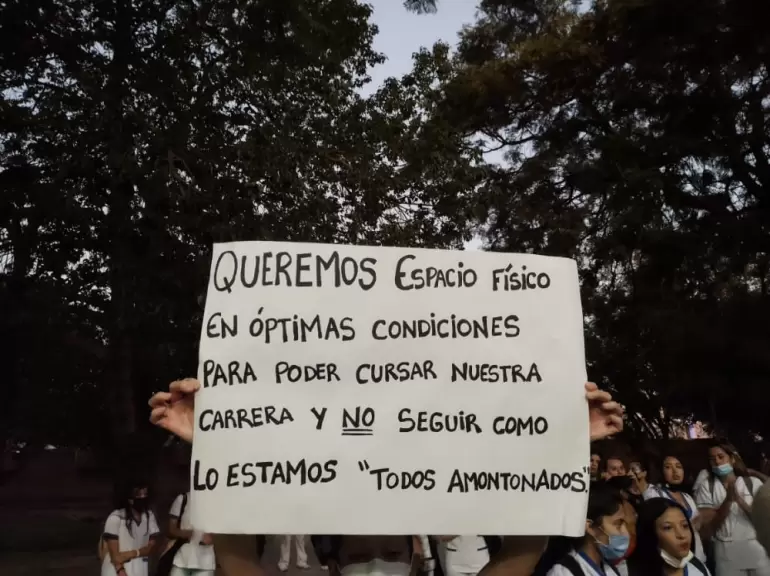 QUEREMOS ESPACIO FÍSICO
EN ÓPTIMAS CONDICIONES
PARA PODER CURSAR NUESTRA
CARRERA Y NO SEGUIR COMO
LO ESTAMOS "TODOS AMONTONADOS".